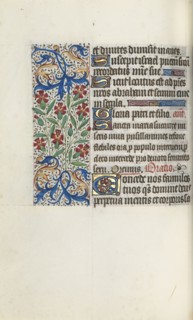 et divites dimisit inanes
Suscepit israel puerum suum
recordatus misericordie sue
Sicut locutus est ad patres
nostros abraham et semini eius
in secula.
Gloria patri et filio. ant.
Sancta maria succurre mi
seris iuva pusillanimes refove
flebiles ora pro populo interveni pro
clero intercede pro devoto femineo
sexu. Oremus. Oratio.
Concede nos famulos
tuos quesumus domine deus
perpetua mentis et corporis sa